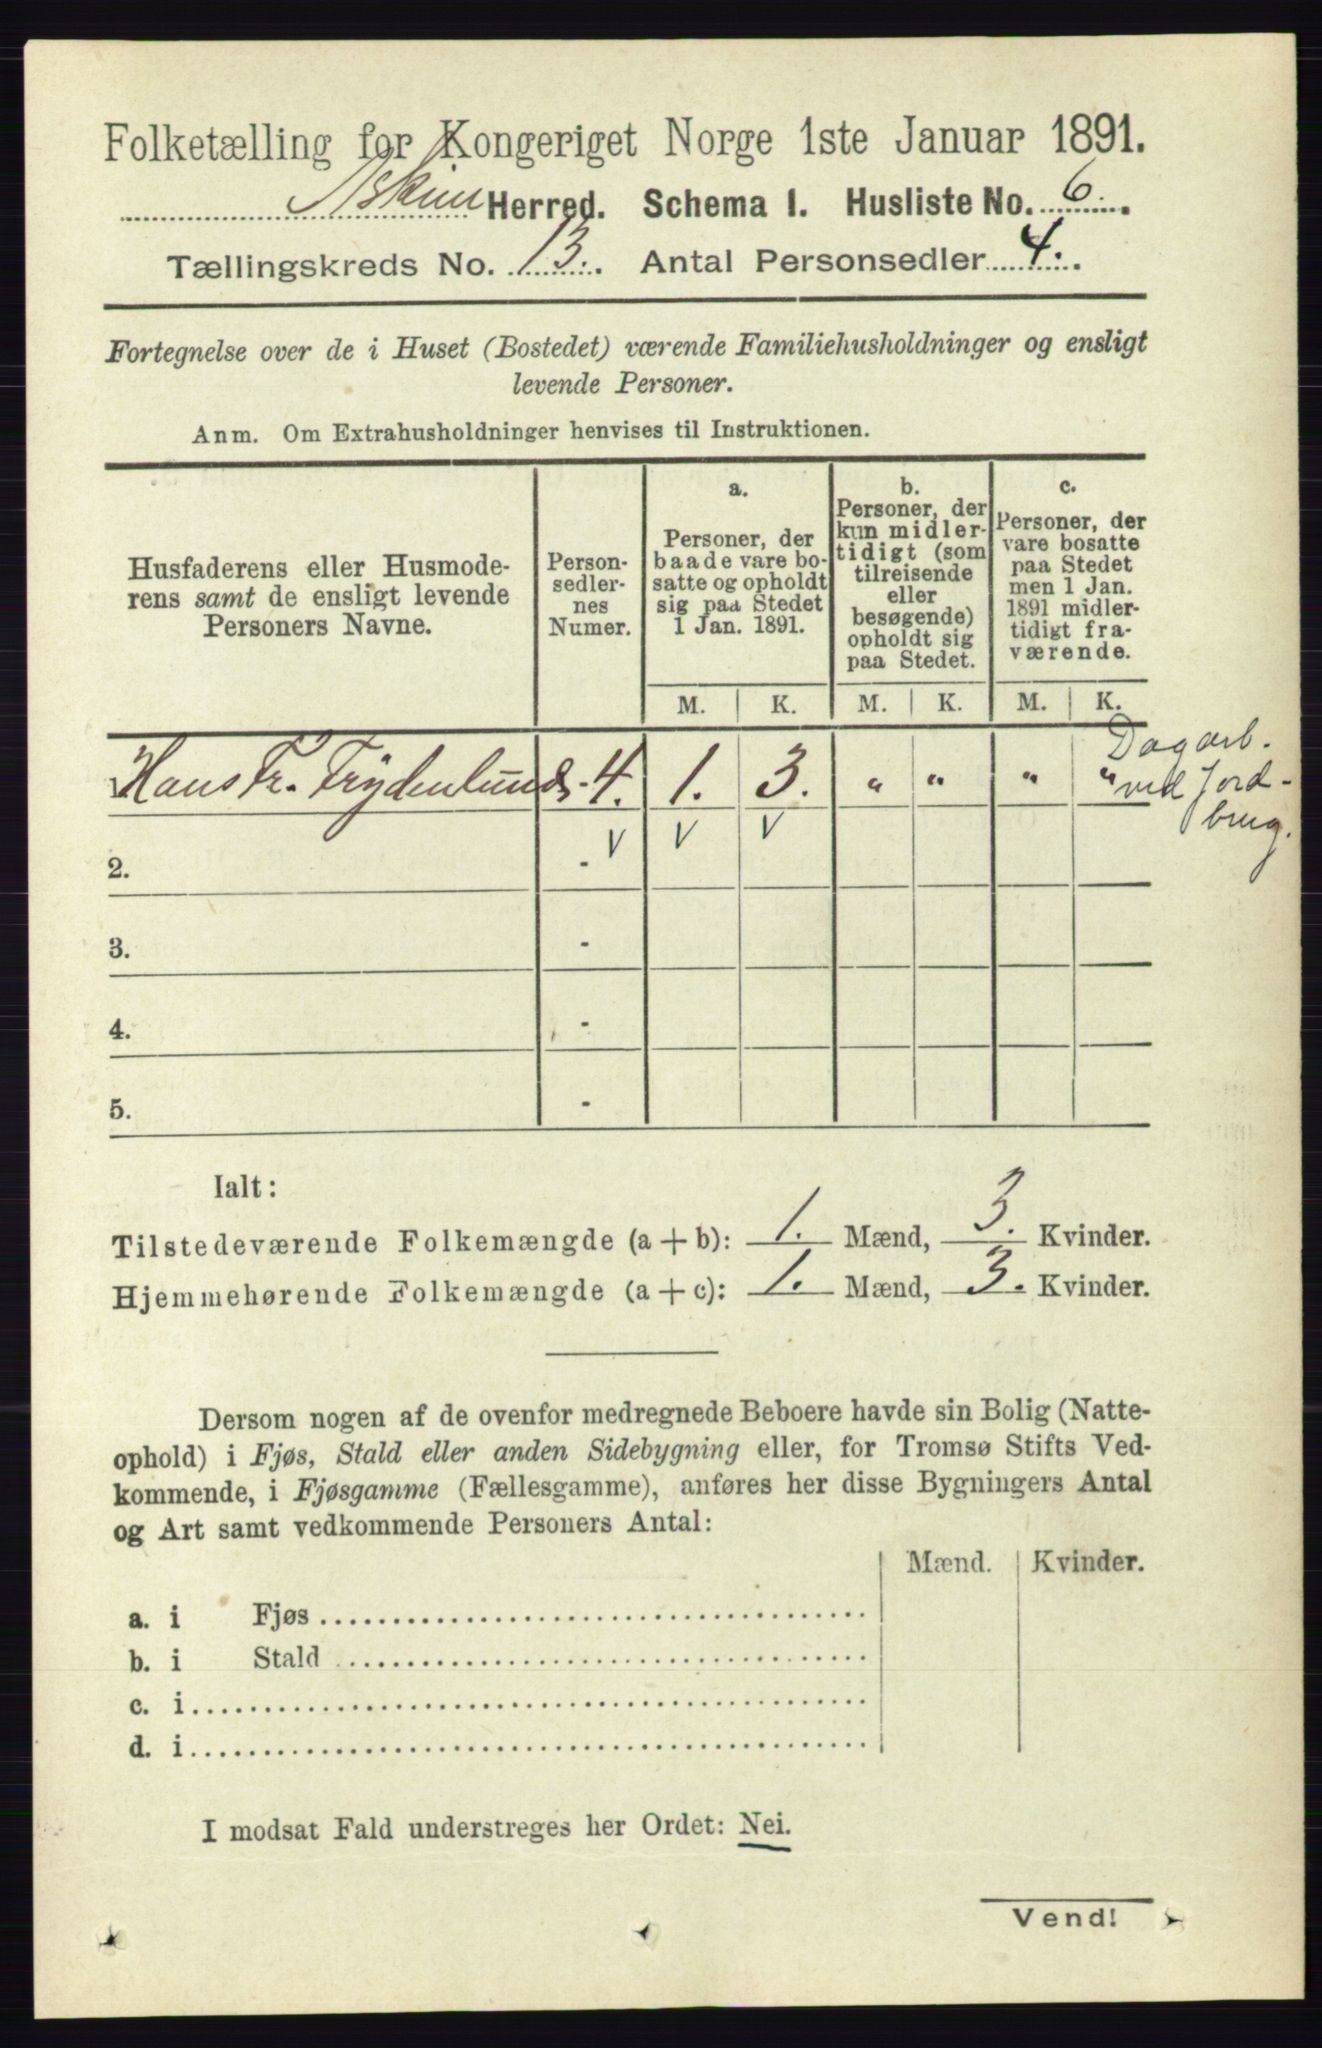 Folketælling for Kongeriget Norge 1ste Januar 1891.
Askim Herred. Schema 1. Husliste No. 6.
Tællingskreds No. 13. Antal Personsedler 4.
Fortegnelse over de i Huset (Bostedet) værende Familiehusholdninger og ensligt
levende Personer.
Anm. Om Extrahusholdninger henvises til Instruktionen.
Husfaderens eller Husmode-
rens samt de ensligt levende
Personers Navne.
Person-
sedler-
nes
Numer.
a.
Personer, der
baade vare bo-
satte og opholdt
sig paa Stedet
1 Jan. 1891.
b.
Personer, der
kun midler-
tidigt (som
tilreisende
eller
besøgende)
opholdt sig
paa Stedet.
c.
Personer, der
vare bosatte
paa Stedet
men 1 Jan.
1891 midler-
tidigt fra-
værende.
M. K. M. K. M. K.
Hans Fr. Frydenlund 4. 1. 3. " " " "
Dagarb.
ved Jord-
brug.
V V V
2. -
3. -
4. -
5. -
Ialt:
Tilstedeværende Folkemængde (a + b): 1. Mænd, 3. Kvinder.
Hjemmehørende Folkemængde (a + c): 1. Mænd, 3. Kvinder.
Dersom nogen af de ovenfor medregnede Beboere havde sin Bolig (Natte-
ophold) i Fjøs, Stald eller anden Sidebygning eller, for Tromsø Stifts Ved-
kommende, i Fjøsgamme (Fællesgamme), anføres her disse Bygningers Antal
og Art samt vedkommende Personers Antal:
Mænd. Kvinder.
a. i Fjøs
b. i Stald
c. i
d. i
I modsat Fald understreges her Ordet: Nei.
Vend!